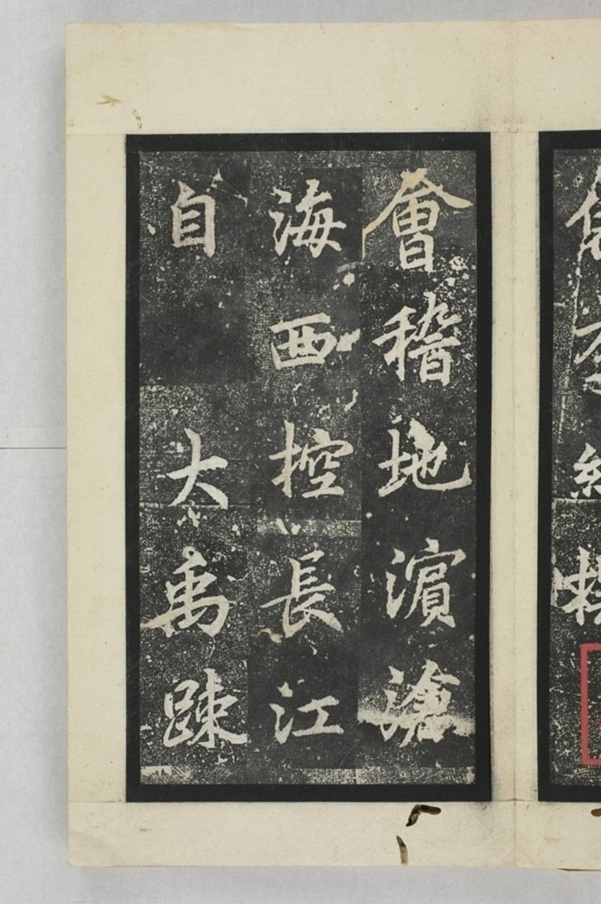 會稽地濵滄
海西控長江
自大禹踈